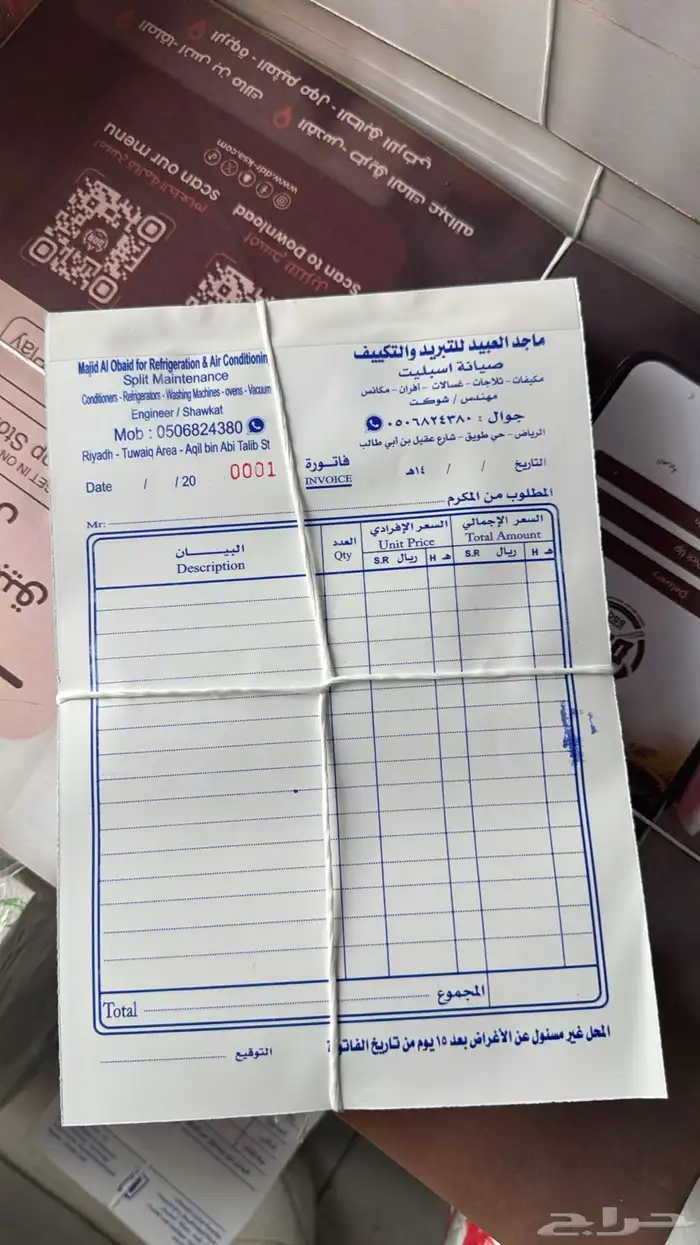 القدس - طريق الملك عبدالله
الملقا - أنس بن مالك
www.ddr-ksa.com
Scan our menu
Scan to Download
ماجد العبيد للتبريد والتكييف
صيانة اسبليت
مكيفات - ثلاجات - غسالات - أفران - مكانس
مهندس / شوكت
جوال : ٠٥٠٦٨٢٤٣٨٠
الرياض - حي طويق - شارع عقيل بن ابي طالب
Majid Al Obaid for Refrigeration & Air Conditionin
Split Maintenance
Conditioners - Refrigerators - Washing Machines - ovens - Vacuum
Engineer / Shawkat
Mob : 0506824380
Riyadh - Tuwaiq Area - Aqil bin Abi Talib St
التاريخ / / ١٤هـ
فاتورة
INVOICE
0001
Date / / 20
المطلوب من المكرم
Mr:
السعر الإجمالي السعر الإفرادي العدد البيـــان
Total Amount Unit Price Qty Description
هـ H ريال S.R هـ H ريال S.R
المجموع
Total
المحل غير مسئول عن الأغراض بعد ١٥ يوم من تاريخ الفاتورة
التوقيع
حراج